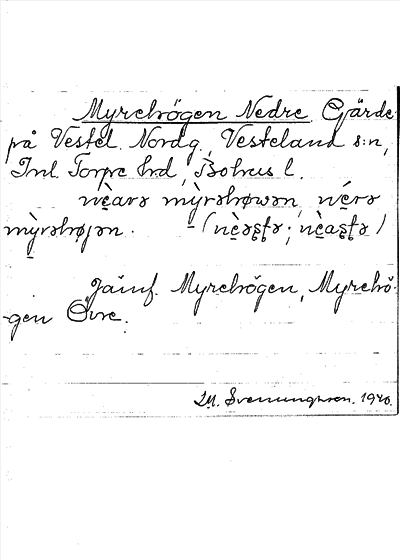 Myrehögen Nedre Gärde
på Vestel. Nordg., Vesteland s:n,
Inl. Torpe hrd, Bohus l.
nèarə mỳrəhøwən, nérə
mỳrəhøjən. - (nèəʂʈə; nèaʂʈə)
Jämf. Myrehögen, Myrehö-
gen Övre.
Svenungsson. 1940.